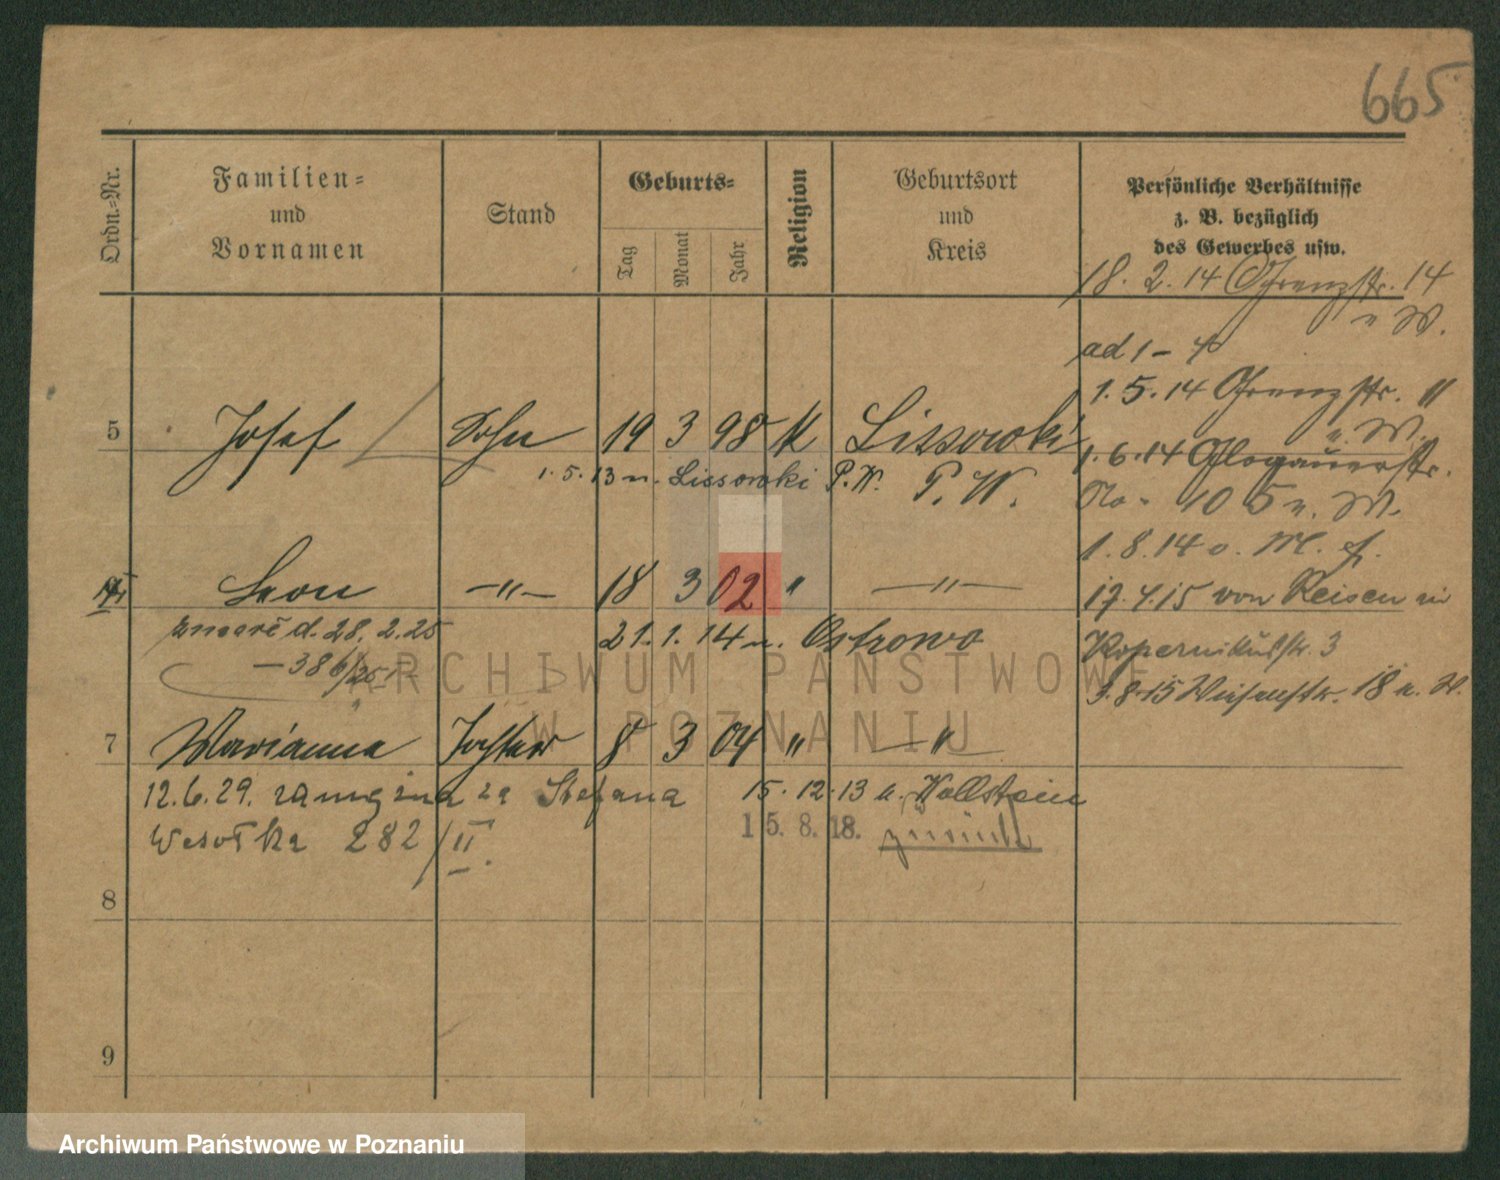 665
Ordn.-Nr.
Familien-
und
Vornamen
Stand
Geburts-
Tag
Monat
Jahr
Religion
Geburtsort
und
Kreis
Persönliche Verhältnisse
z. B. bezüglich
des Gewerbes usw.
18. 2. 14 Grenzstr. 14
n W.
ad 1 - 4
1. 5. 14 Grenzstr. "
n. W.
1. 6. 14 Glogauerstr.
No - 105 n. W.
1. 8. 14 o. M. f.
17. 4. 15 von Reisen in
Kopernikusstr. 3
3. 8. 15 Wiesenstr. 18 n. W.
5 Josef Sohn 19 3 98 K Lissowki
1. 5. 13 n. Lissowki P. W. P. W.
Leon -"- 18 3 02 " -"-
zmarł d. 28. 2. 25 21. 1. 14 n. Ostrowo
- 386/25
7 Marianna Tochter 8 3 04 " "
12. 6. 29. zamężna za Stefana 15. 12. 13 n. Wollstein
Wesołka 282/II. 15. 8. 18. zurück
8
9
ARCHIWUM PAŃSTWOWE
W POZNANIU
Archiwum Państwowe w Poznaniu